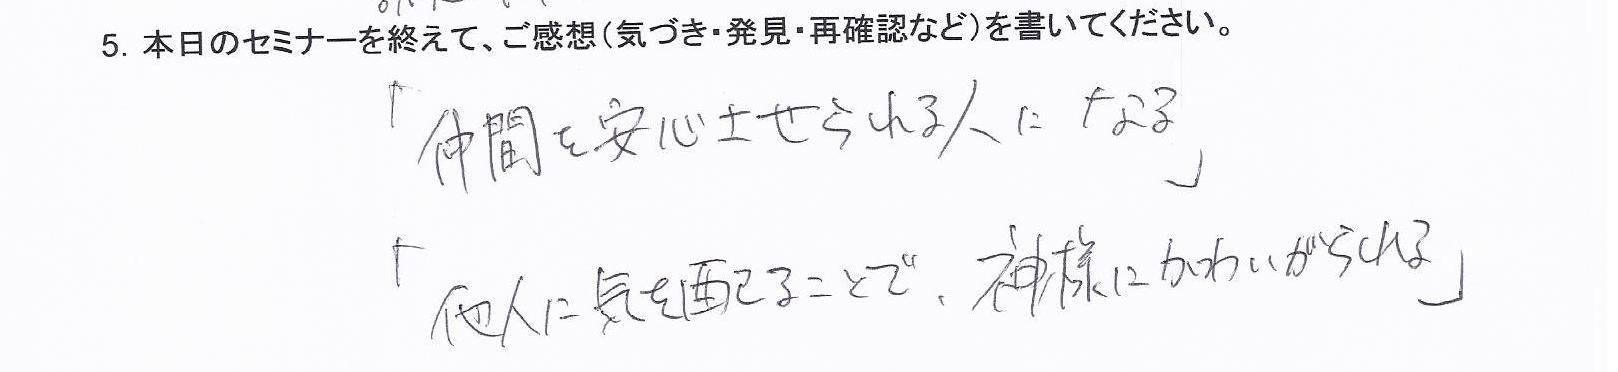 5. 本日のセミナーを終えて、ご感想(気づき・発見・再確認など)を書いてください。
「仲間を安心させられる人になる」
「他人に気を配ることで、神様にかわいがられる」